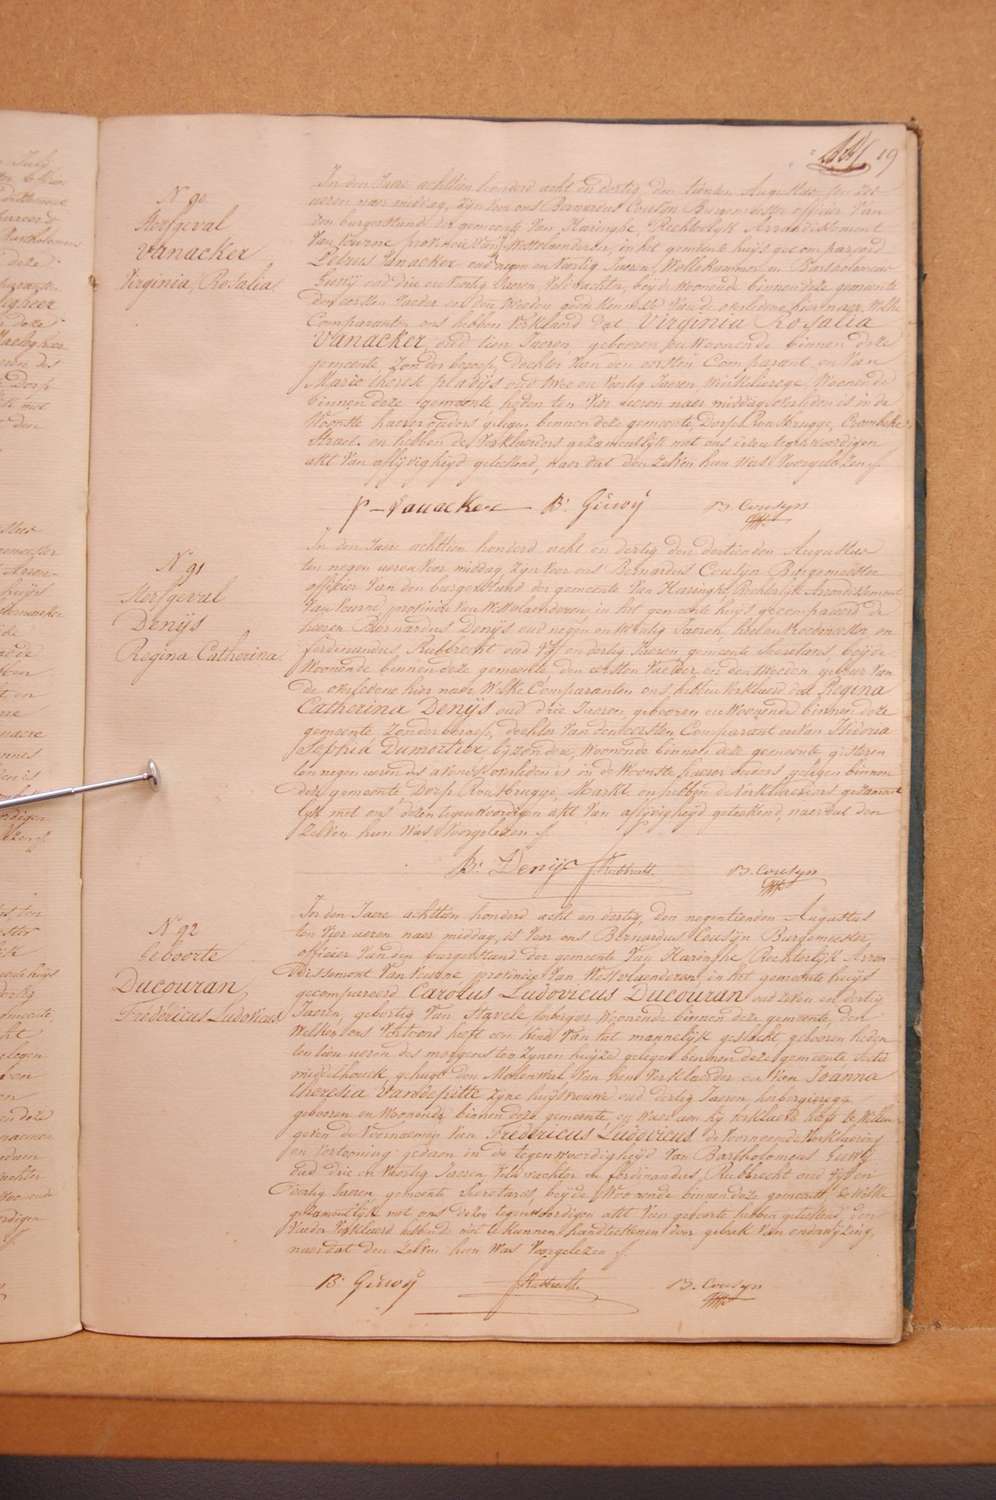 19
N 90
Sterfgeval
Vanacker
Virginia Rosalia
In den Jaere achttien honderd acht en dertig, den tienden Augustus ten
ueren naer middag, zyn voor ons Bernardus Cousyn Burgemeester officier Van
den burgerstand der gemeente Van Haringhe, Rechterlyk Arrondissement
Van veurne provincie Van Westvlaenderen, in het gemeente huys gecompareerd
Petrus Vanacker oud negen en Veertig Jaeren, en Bartholomeus
Gruwÿ oud drie en Veertig Jaeren Veldwachter, beÿde Woonende binnen deze gemeente
den eersten Vader en den tweeden van de overledene hier naer Welke
Comparanten ons hebben Verklaerd dat Virginia Rosalia
Vanacker, oud tien Jaeren gebooren en Woonende binnen deze
gemeente Zonder beroep, dochter Van den eersten Comparant en Van
Marie therese plabÿs oud twee en Veertig Jaeren Winkelierege, Woonende
binnen deze gemeente, heden ten Vier ueren naer middag overleden is in de
Woonste haerer ouders gelegen binnen deze gemeente, Dorp Rousbrugge, Crombeke
Straet en hebben de Verklaerders gezamentlyk met ons dezen tegenwoordigen
akt Van aflÿvigheÿd geteekend, naer dat den Zelven hun Was Voorgelezen ./.
P - Vanacker B. Gruwÿ B. Cousyn
N 91
Sterfgeval
Denÿs
Regina Catherina
In den Jaere achttien honderd acht en dertig den dertienden Augustus
ten negen ueren Voor middag, zyn Voor ons Bernardus Cousyn Burgemeester
officier Van den burgerstand der gemeente Van Haringhe, Rechterlyk Arrondissement
Van Veurne, provincie Van Westvlaenderen, in het gemeente huys gecompareerd de
heeren Bernardus Denÿs oud negen en Jaeren, heel en Vroedmeester, en
ferdinandus Rubbrecht oud Vyf en dertig Jaeren gemeente Secretaris, beÿde
Woonende binnen deze gemeente, den eersten Vaeder en den tweeden gebuer Van
de overledene hier naer Welke Comparanten ons hebben Verklaerd dat Regina
Catherina Denÿs oud drie Jaeren, gebooren en Woonende binnen deze
gemeente Zonder beroep, dochter Van den eersten Comparant en Van Isidoria
Sophia Dumortier byzondere, Woonende binnen deze gemeente, gisteren
ten negen ueren des avonds overleden is in de Woonste haerer ouders gelegen binnen
deze gemeente, Dorp Rousbrugge, Markt en hebben de Verklaerders gezament
lyk met ons dezen tegenwoordigen akt Van aflÿvigheÿd geteekend, naer dat den
Zelven hun Was Voorgelezen ./.
B. Denÿs f Rubbrecht B. Cousyn
N 92
Geboorte
Ducouran
Fredericus Ludovicus
In den Jaere achttien honderd acht en dertig, den negentienden Augustus
ten Vier ueren naer middag, is Voor ons Bernardus Cousÿn Burgemeester
officier Van den burgerstand der gemeente Van Haringhe, Rechterlyk Arron
dissement Van Veurne provincie Van Westvlaenderen, in het gemeente huÿs
gecompareerd Carolus Ludovicus Ducouran oud zeven en dertig
Jaeren, geboortig Van Stavele herbergier Woonende binnen deze gemeente, den
Welken ons Vertoond heeft een Kind Van het mannelyk geslacht, gebooren heden
ten tien ueren des morgens ten Zynen huyze gelegen binnen deze gemeente Sectie
middelhouck gehugt den Molenwal Van hem Verklaerder en Van Joanna
theresia Vandepitte Zyne huysvrouwe oud dertig Jaeren herbergierege
gebooren en Woonende binnen deze gemeente en Waer aen hy Verklaert heeft te Willen
geven de Voornaemen Van Fredericus Ludovicus de Voornoemde Verklaering
en Vertooning gedaen in de tegenwoordigheÿd Van Bartholomeus Gruwÿ
oud drie en Veertig Jaeren, Veldwachter en ferdinandus Rubbrecht oud Vyf en
dertig Jaeren gemeente Secretaris, beÿde Woonende binnen deze gemeente de Welke
gezamentlÿk met ons dezen tegenwoordigen akt Van geboorte hebben geteekend, den
Vaeder Verklaerd hebbende niet te kunnen handteekenen door gebrek Van onderwÿzing,
naer dat den Zelven hun Was Voorgelezen ./.
B. Gruwÿ f Rubbrecht B. Cousyn